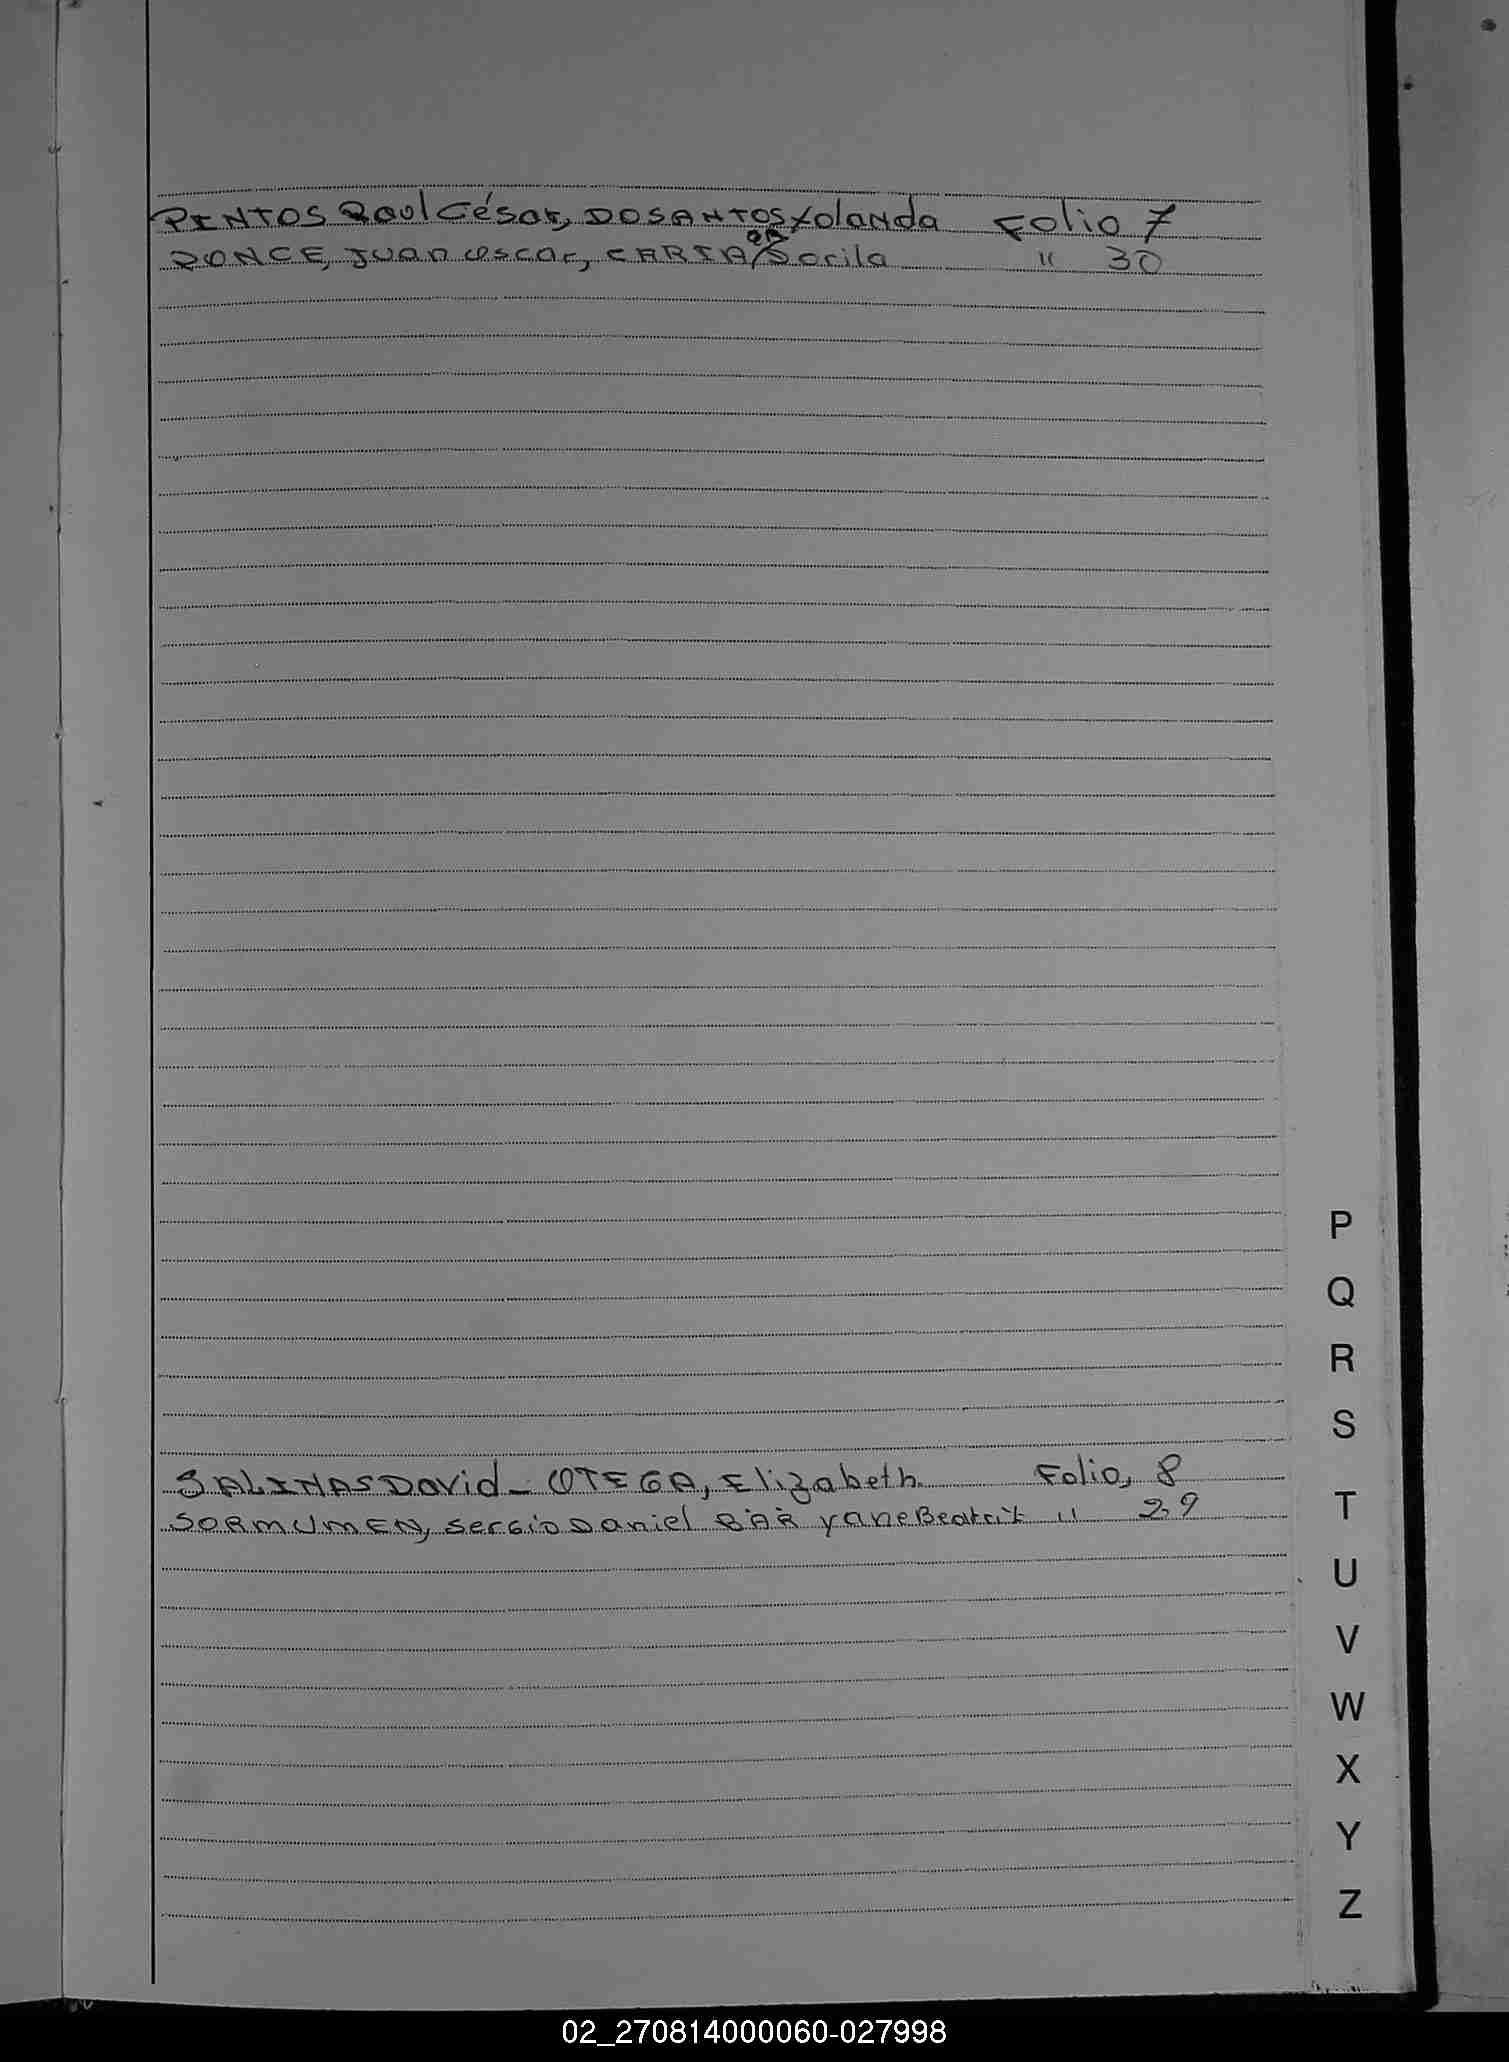 PINTOS Raul César, DOSANTOS Yolanda Folio 7
PONCE, Juan Oscar, CARIA/Dorila " 30
P
Q
R
S
SALINAS David - OTEGA, Elizabeth. Folio, 8
SORMUMEN, Sergio Daniel BAR yane Beatriz " 29
T
U
V
W
X
Y
Z
02_270814000060-027998